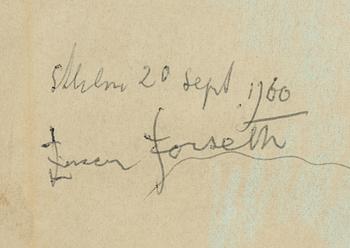 Sthlm 20 sept. 1960
Einar Forseth